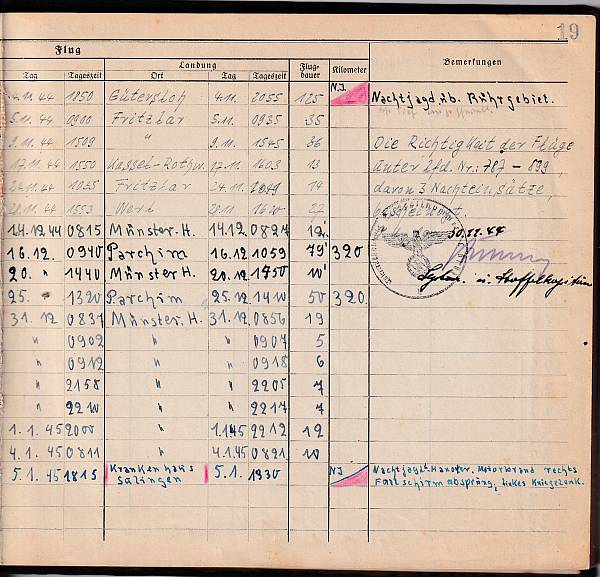 19
Flug
Landung Flug- Kilometer Bemerkungen
Tag Tageszeit Ort Tag Tageszeit dauer
4.11.44 1850 Gütersloh 4.11. 2055 125 N.J. Nachtjagd üb. Ruhrgebiet.
5.11.44 0900 Fritzlar 5.11. 0935 35
9.11.44 1509 " 9.11. 1545 36 Die Richtigkeit der Flüge
17.11.44 1550 Kassel-Rothw. 17.11. 1603 13 unter lfd. Nr.: 787 - 899,
24.11.44 1035 Fritzlar 24.11. 14 davon 3 Nachteinsätze,
28.11.44 1553 Werl 28.11 1620 27 bescheinigt.
14.12.44 0815 Münster.H. 14.12. 0827 12' 30.11.44
16.12. 0940 Parchim 16.12 1059 79' 320
20. " 1440 Münster H. 20.12. 1750 10' u. Staffelkapitän
25. " 1320 Parchim 25.12 1410 50 320
31.12 0837 Münster.H. 31.12. 0856 19
" 0902 " " 0907 5
" 0912 " " 0918 6
" 2158 " " 2205 7
" 2210 " " 2217 7
1.1.45 2000 " 1.1.45 2212 12
4.1.45 0811 " 4.1.45 0821 10
5.1.45 1815 Krankenhaus 5.1. 1930 NJ Nachtjagd Hanover. Motorbrand rechts
Salingen Fallschirmabsprung, linkes Kniegelenk.